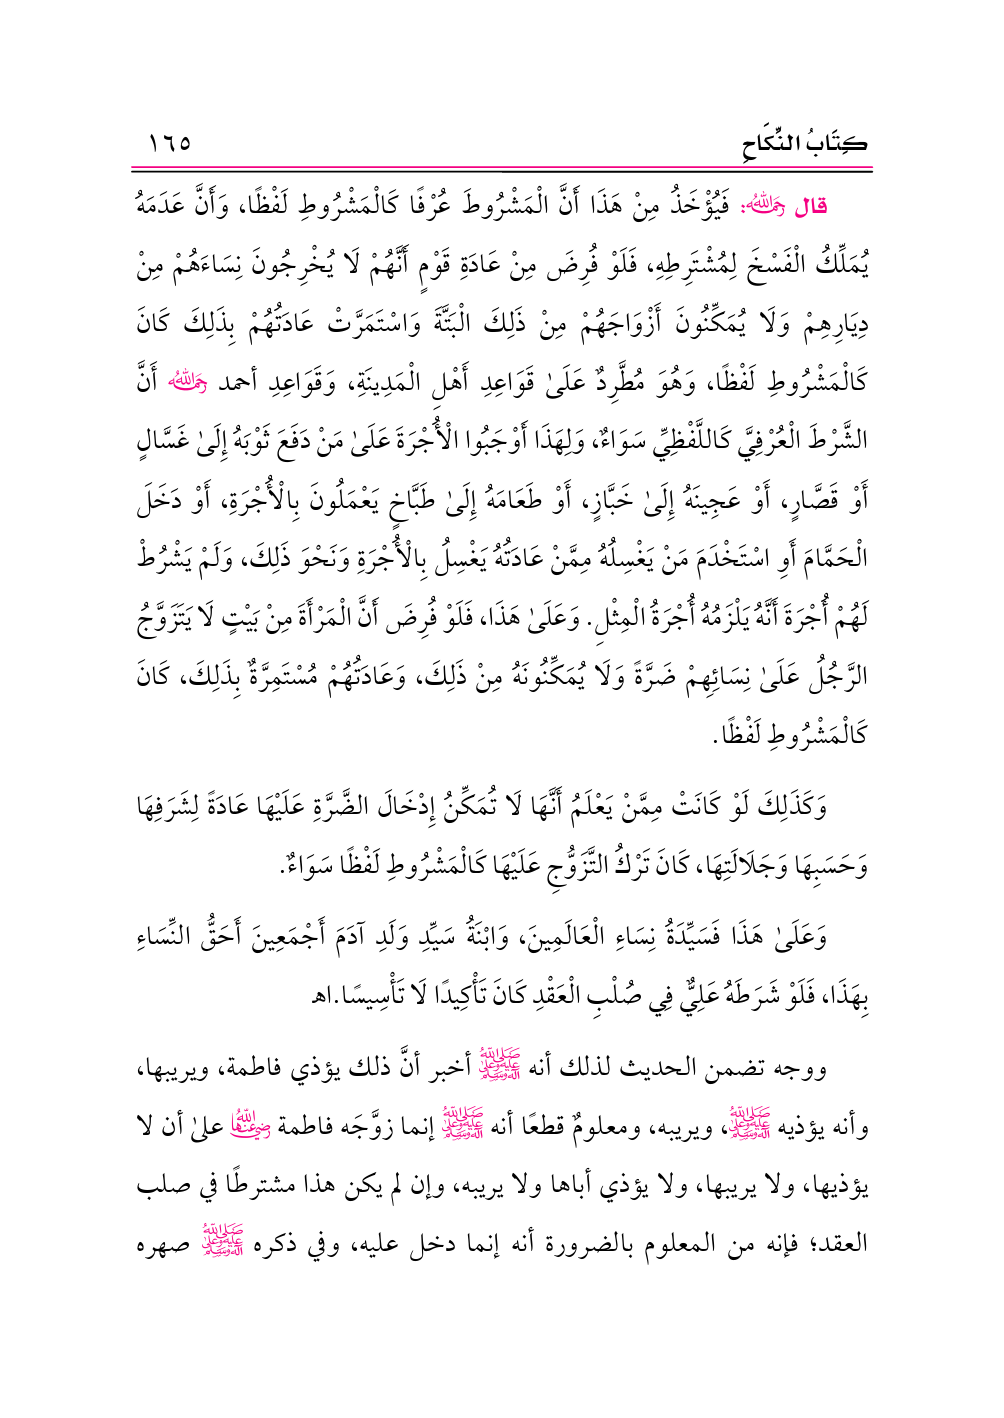 كِتَابُ النِّكَاحِ ١٦٥
قال رَحِمَهُ اللهُ: فَيُؤْخَذُ مِنْ هَذَا أَنَّ الْمَشْرُوطَ عُرْفًا كَالْمَشْرُوطِ لَفْظًا، وَأَنَّ عَدَمَهُ
يُمَلِّكُ الْفَسْخَ لِمُشْتَرِطِهِ، فَلَوْ فُرِضَ مِنْ عَادَةِ قَوْمٍ أَنَّهُمْ لَا يُخْرِجُونَ نِسَاءَهُمْ مِنْ
دِيَارِهِمْ وَلَا يُمَكِّنُونَ أَزْوَاجَهُمْ مِنْ ذَلِكَ الْبَتَّةَ وَاسْتَمَرَّتْ عَادَتُهُمْ بِذَلِكَ كَانَ
كَالْمَشْرُوطِ لَفْظًا، وَهُوَ مُطَّرِدٌ عَلَىٰ قَوَاعِدِ أَهْلِ الْمَدِينَةِ، وَقَوَاعِدِ أحمد رَحِمَهُ اللهُ أَنَّ
الشَّرْطَ الْعُرْفِيَّ كَاللَّفْظِيِّ سَوَاءٌ، وَلِهَذَا أَوْجَبُوا الْأُجْرَةَ عَلَىٰ مَنْ دَفَعَ ثَوْبَهُ إِلَىٰ غَسَّالٍ
أَوْ قَصَّارٍ، أَوْ عَجِينَهُ إِلَىٰ خَبَّازٍ، أَوْ طَعَامَهُ إِلَىٰ طَبَّاخٍ يَعْمَلُونَ بِالْأُجْرَةِ، أَوْ دَخَلَ
الْحَمَّامَ أَوِ اسْتَخْدَمَ مَنْ يَغْسِلُهُ مِمَّنْ عَادَتُهُ يَغْسِلُ بِالْأُجْرَةِ وَنَحْوَ ذَلِكَ، وَلَمْ يَشْرُطْ
لَهُمْ أُجْرَةً أَنَّهُ يَلْزَمُهُ أُجْرَةُ الْمِثْلِ. وَعَلَىٰ هَذَا، فَلَوْ فُرِضَ أَنَّ الْمَرْأَةَ مِنْ بَيْتٍ لَا يَتَزَوَّجُ
الرَّجُلُ عَلَىٰ نِسَائِهِمْ ضَرَّةً وَلَا يُمَكِّنُونَهُ مِنْ ذَلِكَ، وَعَادَتُهُمْ مُسْتَمِرَّةٌ بِذَلِكَ، كَانَ
كَالْمَشْرُوطِ لَفْظًا.
وَكَذَلِكَ لَوْ كَانَتْ مِمَّنْ يَعْلَمُ أَنَّهَا لَا تُمَكِّنُ إِدْخَالَ الضَّرَّةِ عَلَيْهَا عَادَةً لِشَرَفِهَا
وَحَسَبِهَا وَجَلَالَتِهَا، كَانَ تَرْكُ التَّزَوُّجِ عَلَيْهَا كَالْمَشْرُوطِ لَفْظًا سَوَاءٌ.
وَعَلَىٰ هَذَا فَسَيِّدَةُ نِسَاءِ الْعَالَمِينَ، وَابْنَةُ سَيِّدِ وَلَدِ آدَمَ أَجْمَعِينَ أَحَقُّ النِّسَاءِ
بِهَذَا، فَلَوْ شَرَطَهُ عَلِيٌّ فِي صُلْبِ الْعَقْدِ كَانَ تَأْكِيدًا لَا تَأْسِيسًا.اهـ
ووجه تضمن الحديث لذلك أنه ﷺ أخبر أنَّ ذلك يؤذي فاطمة، ويريبها،
وأنه يؤذيه ﷺ، ويريبه، ومعلومٌ قطعًا أنه ﷺ إنما زوَّجَه فاطمة رَضِيَ اللهُ عَنْهَا علىٰ أن لا
يؤذيها، ولا يريبها، ولا يؤذي أباها ولا يريبه، وإن لم يكن هذا مشترطًا في صلب
العقد؛ فإنه من المعلوم بالضرورة أنه إنما دخل عليه، وفي ذكره ﷺ صهره